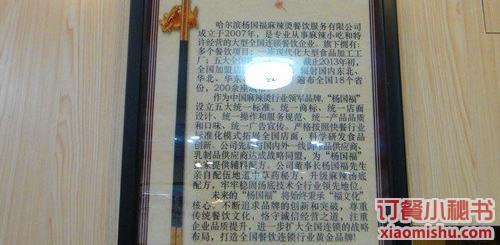 哈尔滨杨国福麻辣烫餐饮服务有限公司
成立于2007年,是专业从事麻辣小吃和特
许经营的大型全国连锁餐饮企业。旗下拥有:
多个餐饮项目;一 现代化大型食品加工工
厂;五大全国 截止2013年初,
全国加盟店 辐射国内东北、
华北、华东 遍布全国18个省
份,200余座
作为中国麻辣烫行业领军品牌,“杨国福”
设立五大统一标准,统一商标、统一店面
设计、统一操作和服务规范、统一产品品质
和口味、统一广告宣传。严格按照快餐行业
标准化模式拓展全国店面,科学研发食品
创新。公司先后与国内外一线调 品供应商、
乳制品供应商达成战略同盟,为“杨国福”
未来提供辅料配方。公司董事长杨国福先生
亲自配伍地道中草药秘方,升级麻辣汤底
配方,牢牢稳固汤底技术全行业领先地位。
未来的“杨国福”将始终秉承“福文化”
核心,不断追求品牌的创新和突破,尊重
传统餐饮文化,恪守诚信经营之道,注重
企业品质提升,进一步扩大全国连锁的战略
布局,打造全国餐饮连锁行业黄金品牌!
订餐小秘书
xiaomishu.com